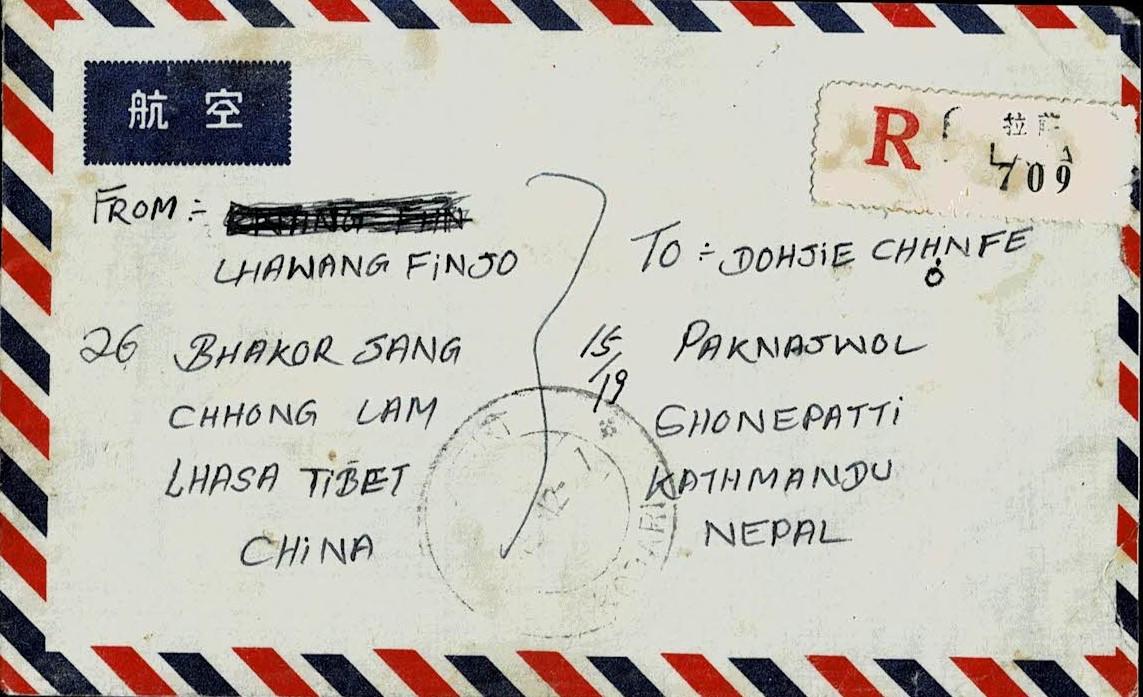 航空
R 拉萨
709
FROM :-
LHAWANG FINJO
26 BHAKOR SANG
CHHONG LAM
LHASA TIBET
CHINA
TO :- DOHJIE CHHNFE
15/19 PAKNAJWOL
GHONEPATTI
KATHMANDU
NEPAL
12- 1